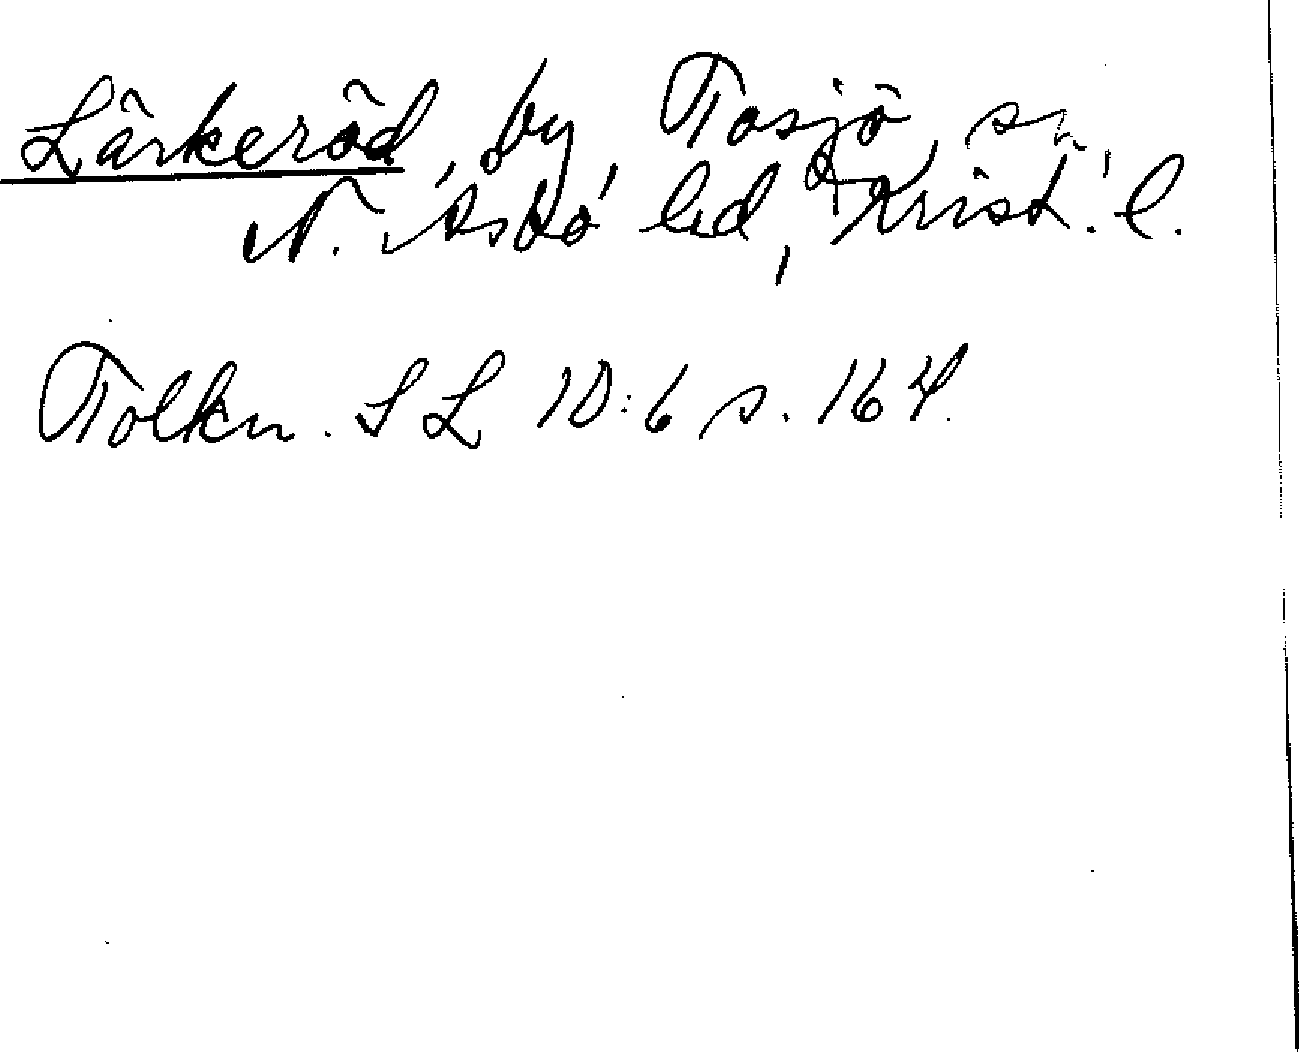 Lärkeröd, by, Tosjö, sn,
N. Åsbo hd, Krist. l.
Tolkn. SL 10:6 s. 164.